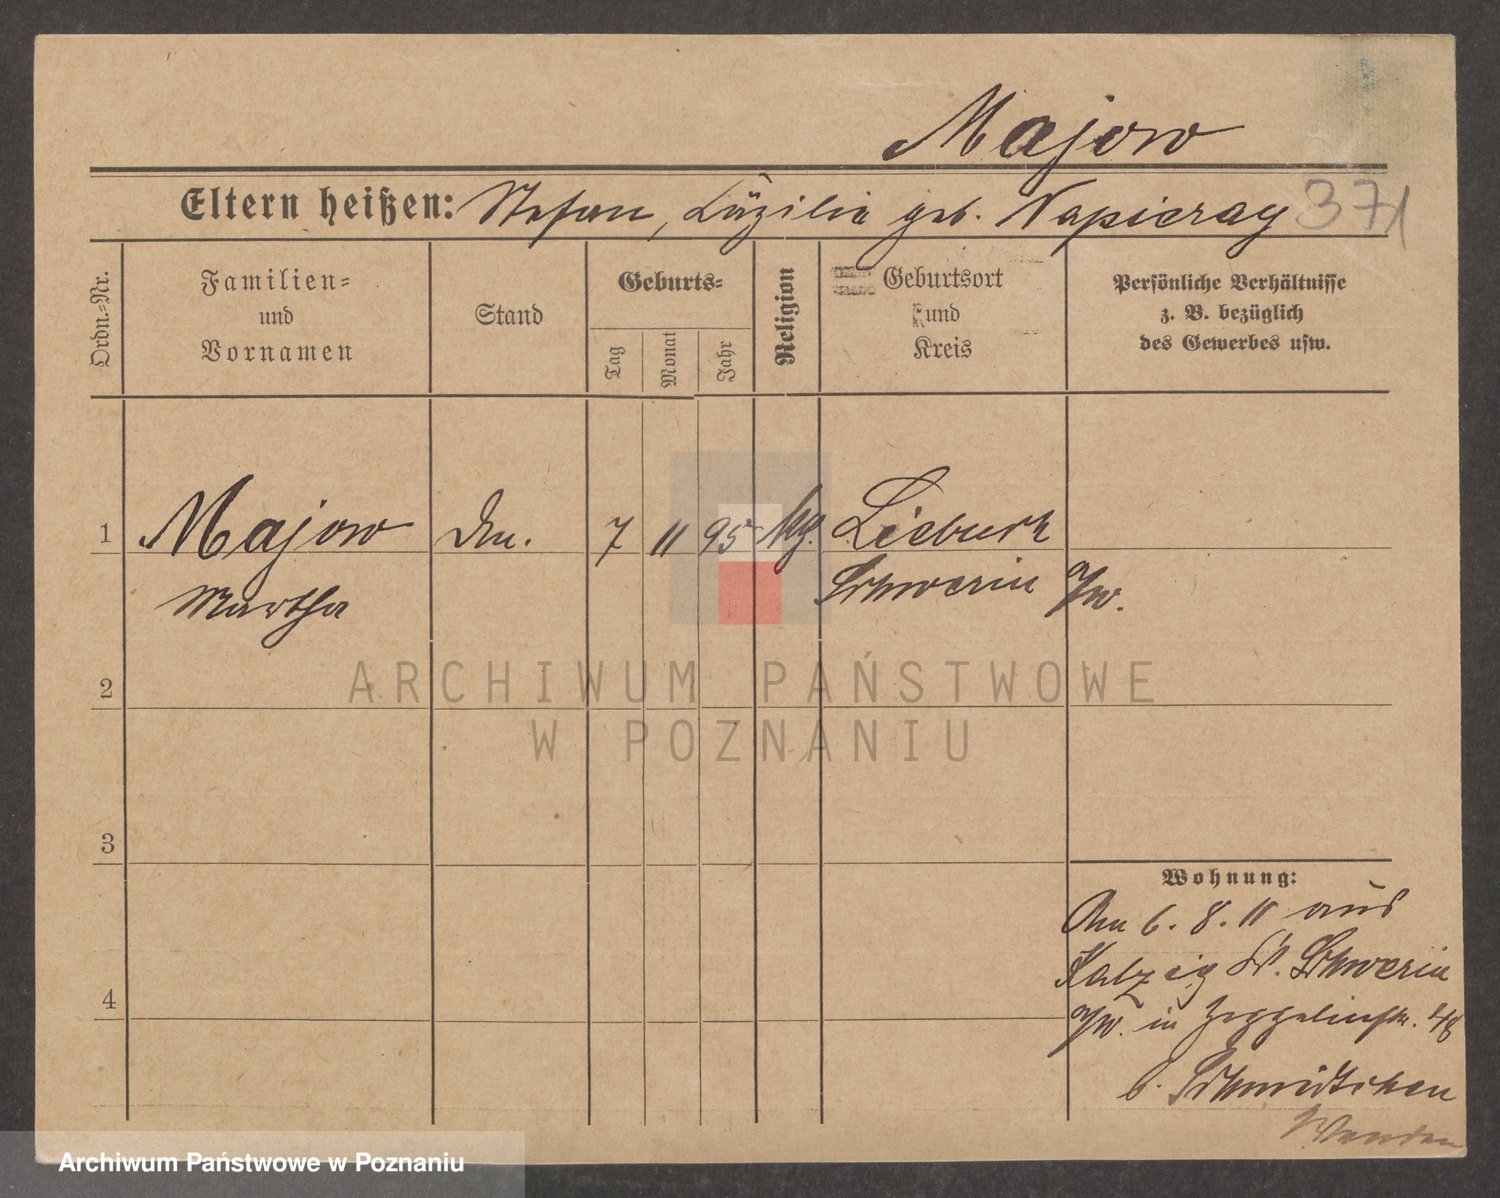 Majorw
371
Eltern heißen: Stefan, Cäzilia geb. Napieray
Ordn.-Nr.
Familien-
und
Vornamen
Stand
Geburts-
Tag
Monat
Jahr
Religion
Geburtsort
und
Kreis
Persönliche Verhältnisse
z. B. bezüglich
des Gewerbes usw.
1 Majorw 7 11 95 Liebuch
Martha Schwerin a/W.
2
3
4
Wohnung:
Am 6. 8. 11 aus
Kalzig Kr. Schwerin
a/W. in Zeppelinstr. 48
b. Schmidtchen
ARCHIWUM PAŃSTWOWE
W POZNANIU
Archiwum Państwowe w Poznaniu